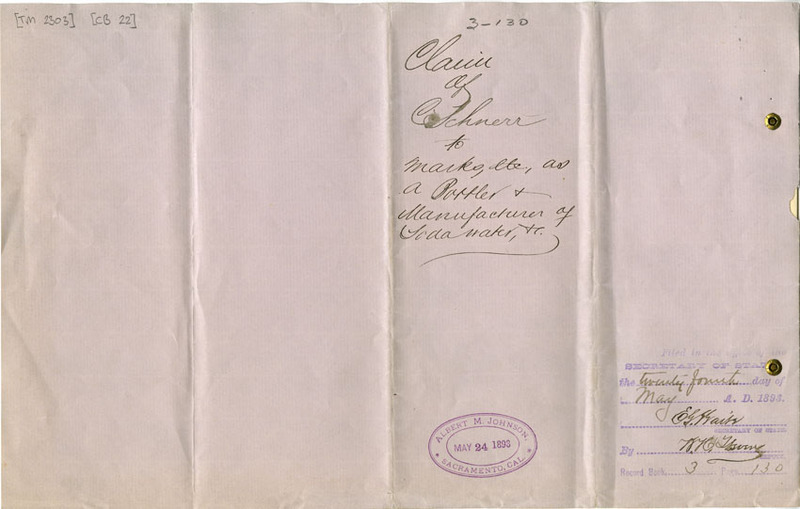 [TM 2303] [CB 22]
3-130
Claim
of
C Schnerr
to
Marks, etc, as
a Bottler &
Manufacturer of
Soda water, &c.
ALBERT M. JOHNSON,
MAY 24 1893
SACRAMENTO, CAL.
Filed in the office of the
SECRETARY OF STATE
the twenty fourth day of
May A. D. 1893.
E. G. Waite
SECRETARY OF STATE
By
DEPUTY.
Record Book 3 Page 130